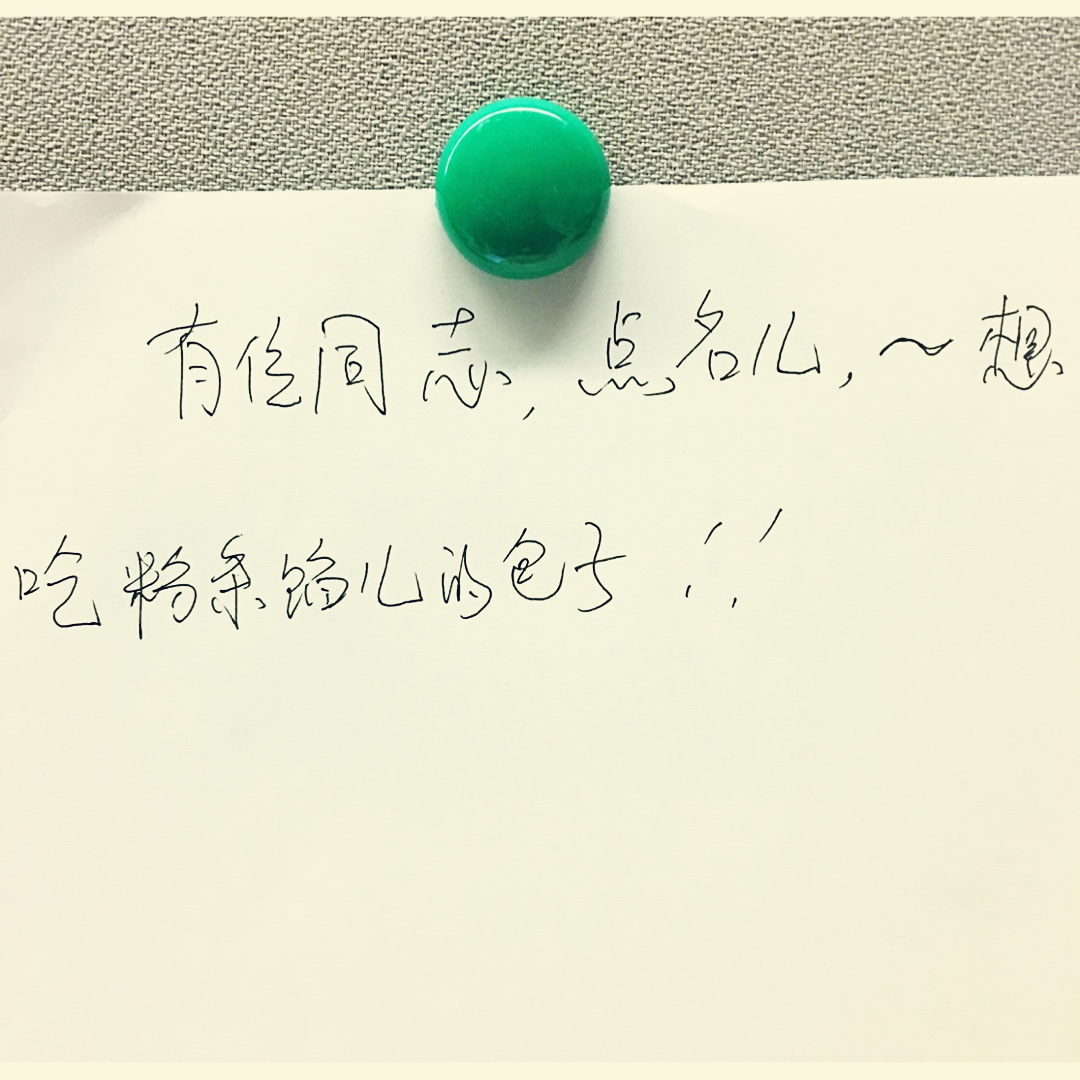 有位同志，点名儿，～想
吃粉条馅儿的包子！！